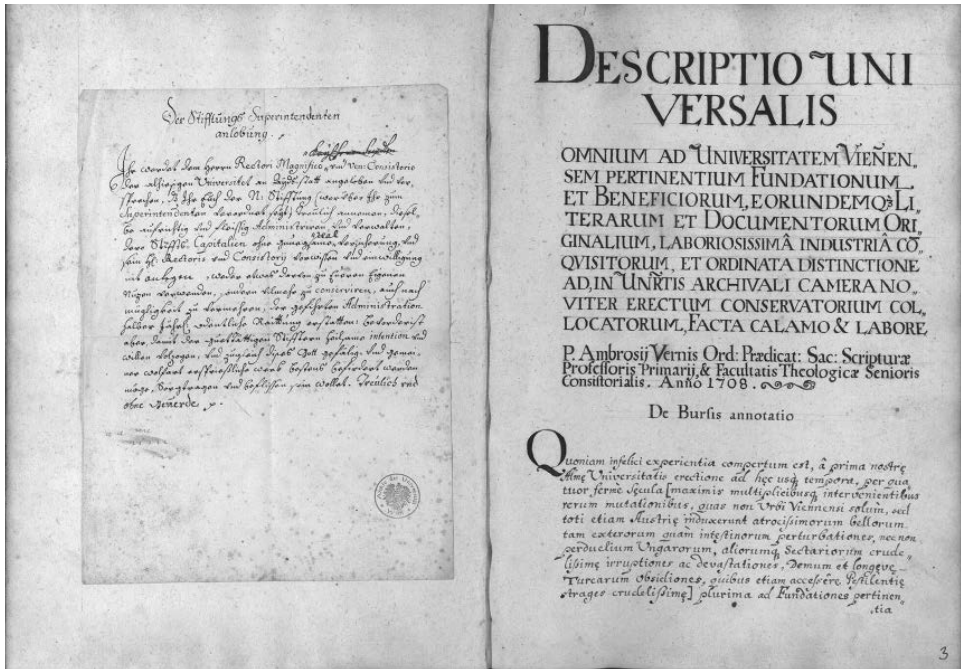 Der Stifftungs Superintendenten
anlobung.
Ihr werdet dem Herrn Rectori Magnifico, und Ven: Consistorio
der alhiesigen Universitet an Aydtsstatt angeloben und ver-
sprechen, das Ihr Euch der N: Stifftung (worüber Ihr zum
Superintendenten verordnet seyt) treulich annemen, diesel-
be aufrichtig und fleissig Administriren und verwalten,
der Stiffts Capitalien ohne genugsame versicherung, und
Rectoris und Consistorij vorwissen und einwilligung
nit anlegen, weder etwas darvon zu Eurem Eigenen
Nuzen verwenden, sondern vilmehr zu conserviren, auch nach
mügligkeit zu vermehren, der geführten Administration
halber Jährlich ordentliche Raittung erstatten: beforderist
aber, damit der guettättigen Stifftern intention und
willen volzogen, und zugleich dises Gott gefällig: und gemei-
ner wolfart erspriessliche werk bestens befördert werden
möge, Sorgtragen und beflissen sein wollet. Treulich und
ohne geuerde
DESCRIPTIO UNI
VERSALIS
OMNIUM AD UNIVERSITATEM VIEÑEN„
SEM PERTINENTIUM FUNDATIONUM,
ET BENEFICIORUM, EORUNDEMQ₃ LI„
TERARUM ET DOCUMENTORUM ORI„
GINALIUM, LABORIOSISSIMÂ INDUSTRIÂ CÕ„
QVISITORUM, ET ORDINATA DISTINCTIONE
AD, IN UNRTIS ARCHIVALI CAMERA NO„
VITER ERECTUM CONSERVATORIUM COL„
LOCATORUM, FACTA CALAMO & LABORE
P. Ambrosij Vernis Ord: Prædicat: Sac: Scripturæ
Professoris Primarij, & Facultatis Theologicæ Senioris
Consistorialis. Anño 1708.
De Bursis annotatio
Quoniam infelici experientia compertum est, â prima nostrę
Almę Universitatis erectione ad hęc usq tempora, per qua
tuor fermè Sęcula [maximis multiplicibusq intervenientibus
rerum mutationibus, quas non Urbi Viennensi solum, sed
toti etiam Austrię induxerunt atrocissimorum bellorum
tam exterorum quam intestinorum perturbationes, nec non
perduelium Ungarorum, aliorumq Sectariorum crude„
lissimę irruptiones ac devastationes, Demum et longęvę
Turcarum Obsidiones, quibus etiam accessêre Pestilentię
strages crudelissimę] plurima ad Fundationes pertinen„
tia
3